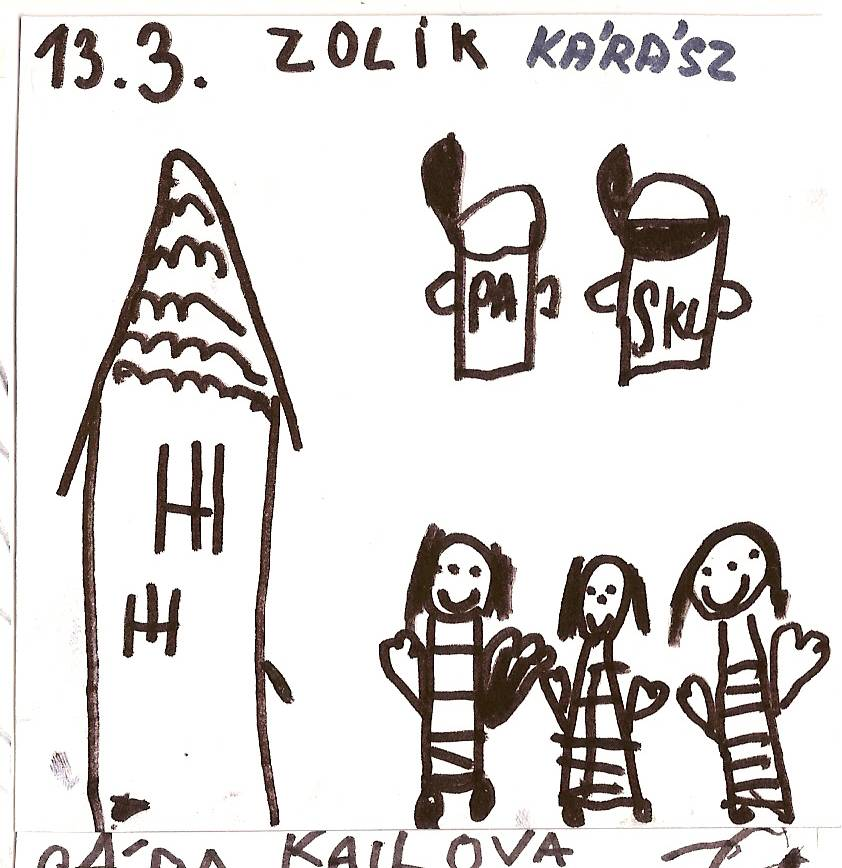 13.3. ZOLÍK KÁRÁSZ
PA
SKL
KAILOVA